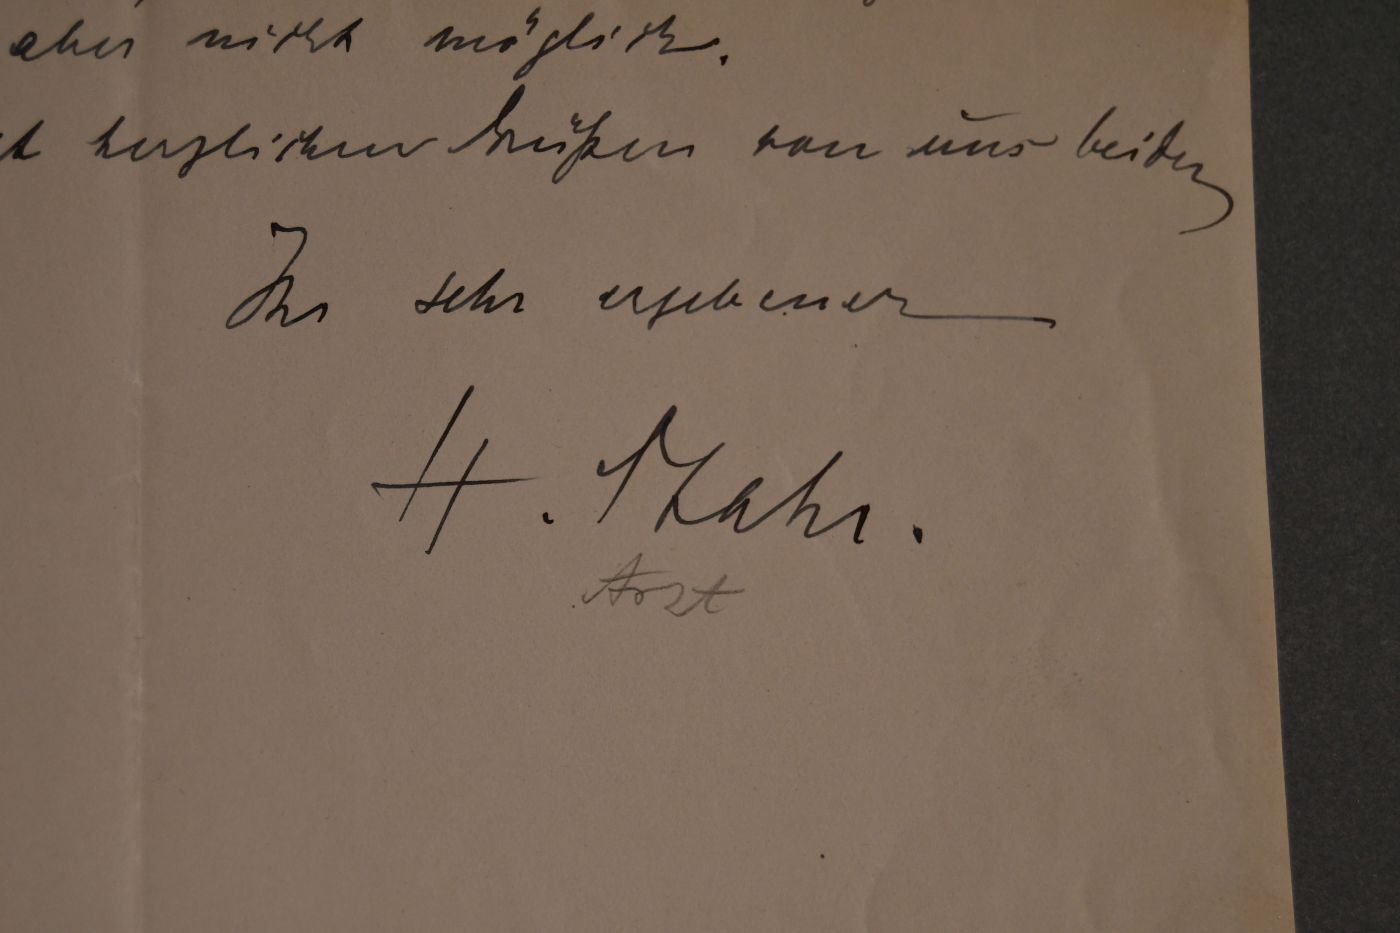 aber nicht möglich.
herzlichen Grüßen von uns beiden
Ihr sehr ergebener
H.
Arzt